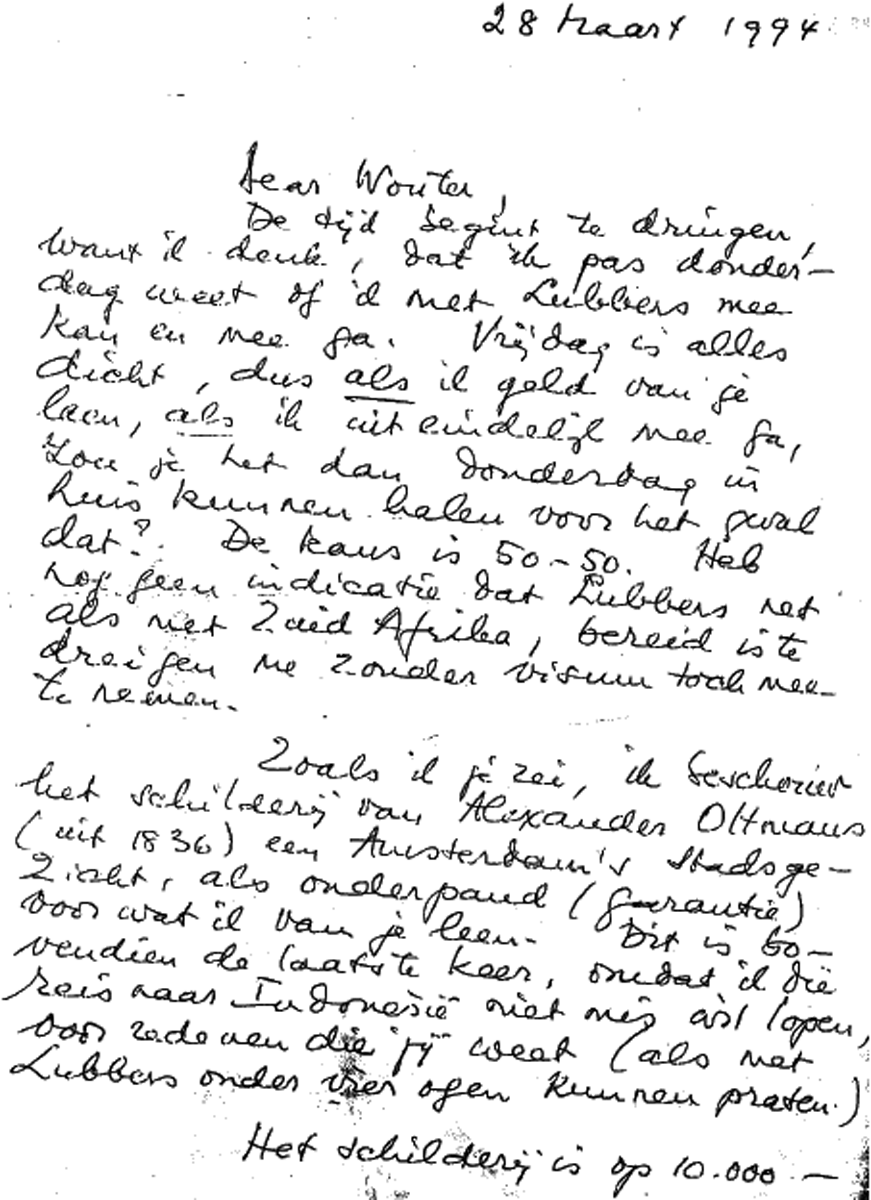 28 Maart 1994
Dear Wouter,
De tijd begint te dringen,
want ik denk, dat ik pas donder-
dag weet of ik met Lubbers mee
kan en mee ga. Vrijdag is alles
dicht, dus als ik geld van je
leen, als ik uiteindelijk mee ga,
zou je het dan donderdag in
huis kunnen halen voor het geval
dat? De kans is 50-50. Heb
nog geen indicatie dat Lubbers net
als met Zuid Afrika, bereid is te
dreigen me zonder visum toch mee-
te nemen.
Zoals ik je zei, ik beschouw
het schilderij van Alexander Oltmans
(uit 1836) een Amsterdam's stadsge-
zicht, als onderpand (garantie)
voor wat ik van je leen. Dit is bo-
vendien de laatste keer, omdat ik die
reis naar Indonesië niet mis wil lopen,
voor redenen die jij weet (als met
Lubbers onder vier ogen kunnen praten.)
Het schilderij is op 10.000 —